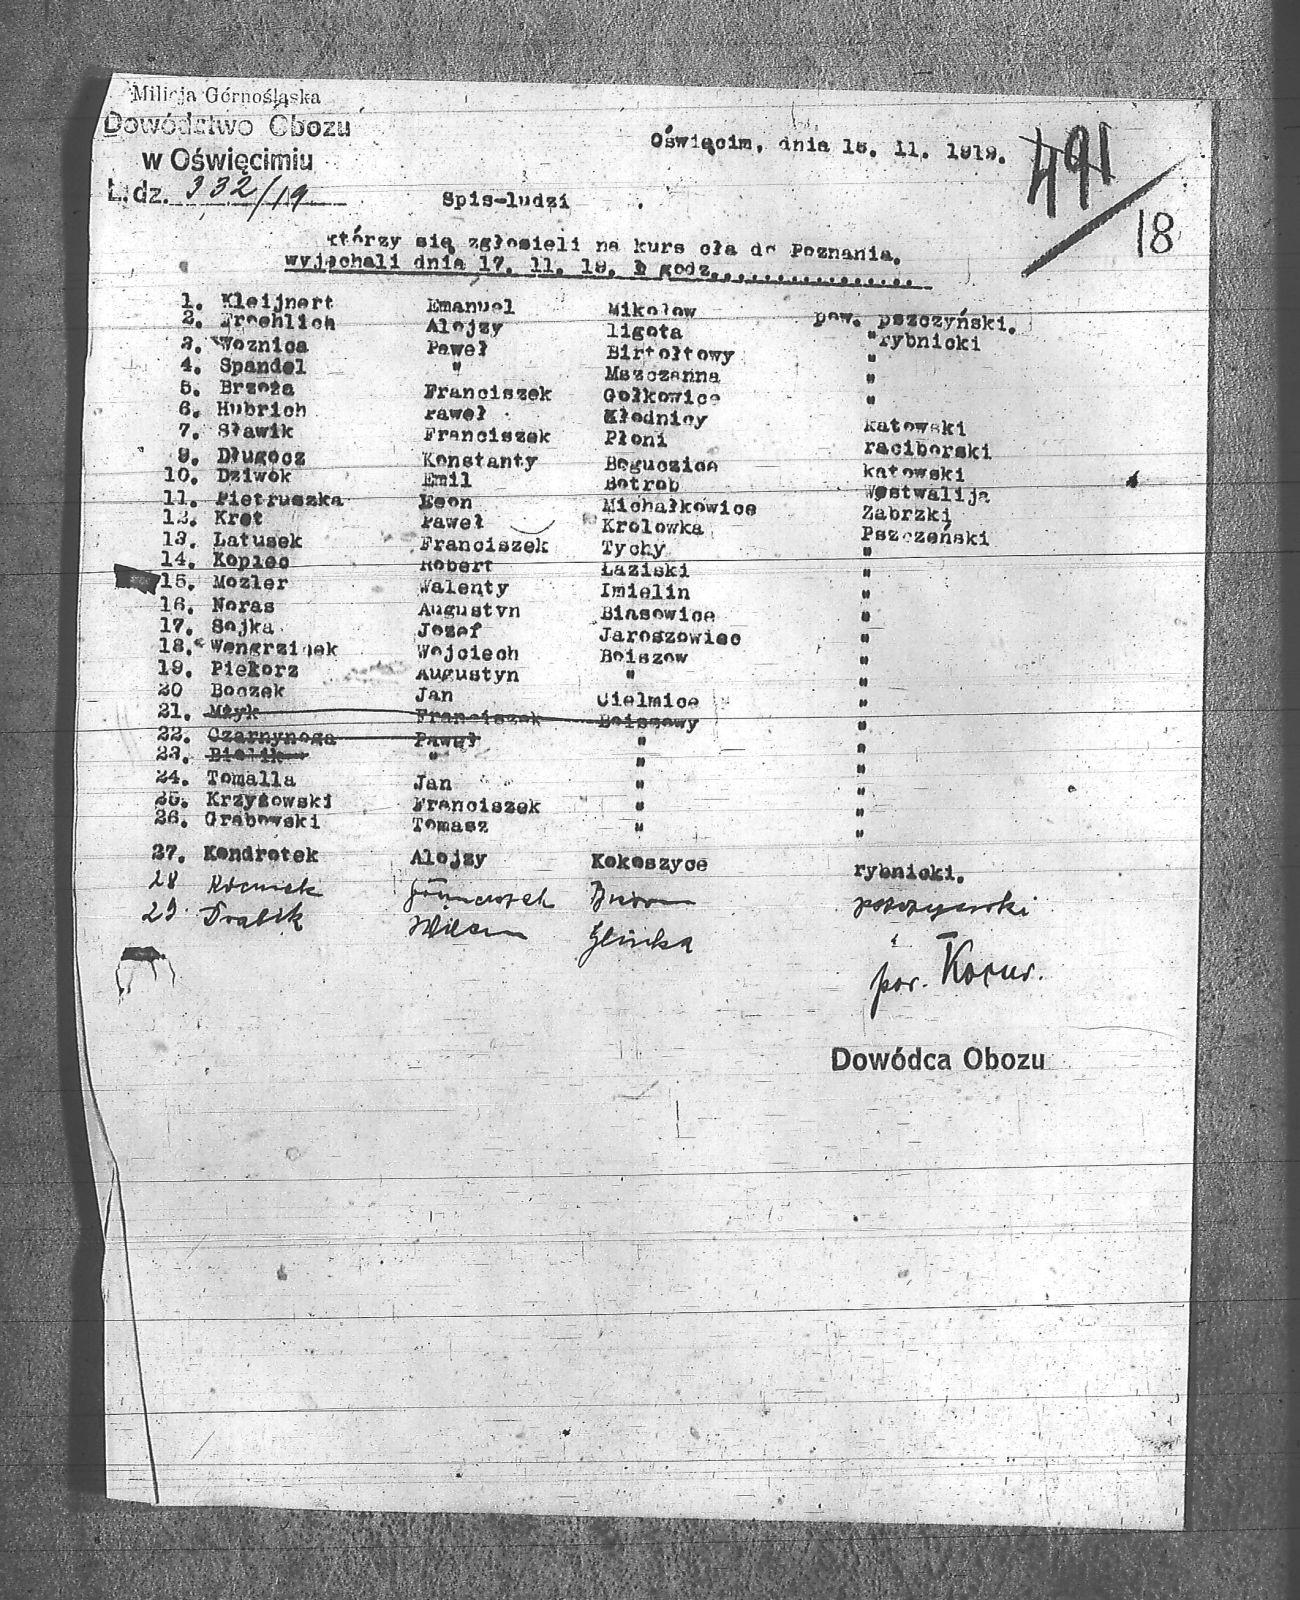 Milicja Górnośląska
Dowództwo Obozu
w Oświęcimiu
L. dz. 332/19
Oświęcim, dnia 15. 11. 1919.
491
18
Spis-ludzi
którzy się zgłosieli na kurs cła do Poznania.
wyjechali dnia 17. 11. 19. o godz................
1. Kleijnert Emanuel Mikołow pow. pszczyński.
2. Froehlich Alojzy ligota " rybnicki
3. Woznica Paweł Birtołtowy "
4. Spandel " Mszczanna "
5. Brzoża Franciszek Gołkowice "
6. Hubrich Paweł Kłodnicy katowski
7. Sławik Franciszek Płoni raciborski
9. Długocz Konstanty Boguczice katowski
10. Dziwok Emil Botrob Westwalija
11. Pietruszka Leon Michałkowice Zabrzki
12. Kret Paweł Krolowka Pszczeński
13. Latusek Franciszek Tychy "
14. Kopiec Robert Łaziski "
15. Mozler Walenty Imielin "
16. Noras Augustyn Biasowice "
17. Sojka Jozef Jaroszowiec "
18. Wengrzinek Wojciech Boiszow "
19. Piekorz Augustyn " "
20 Boczek Jan Cielmice "
21. Mżyk Franciszek Boiszowy "
22. Czarnynoga Paweł " "
23. Bielik " " "
24. Tomalla Jan " "
25. Krzyżowski Franciszek " "
26. Grabowski Tomasz " "
27. Kondrotek Alojzy Kokoszyce rybnicki.
28 Franciszek pszczynski
29 Dralik Glinka "
por. Kocur.
Dowódca Obozu